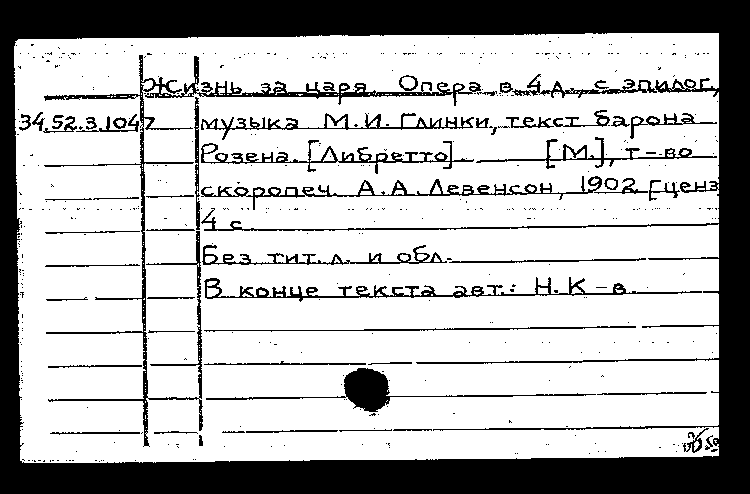 Жизнь за царя. Опера в 4 д., с эпилог,
34.52.3.1047 музыка М.И. Глинки, текст барона
Розена. [Либретто] [М.], т-во
скоропеч. А.А. Левенсон, 1902 [ценз
4 с.
Без тит. л. и обл.
В конце текста авт.: Н. К-в.